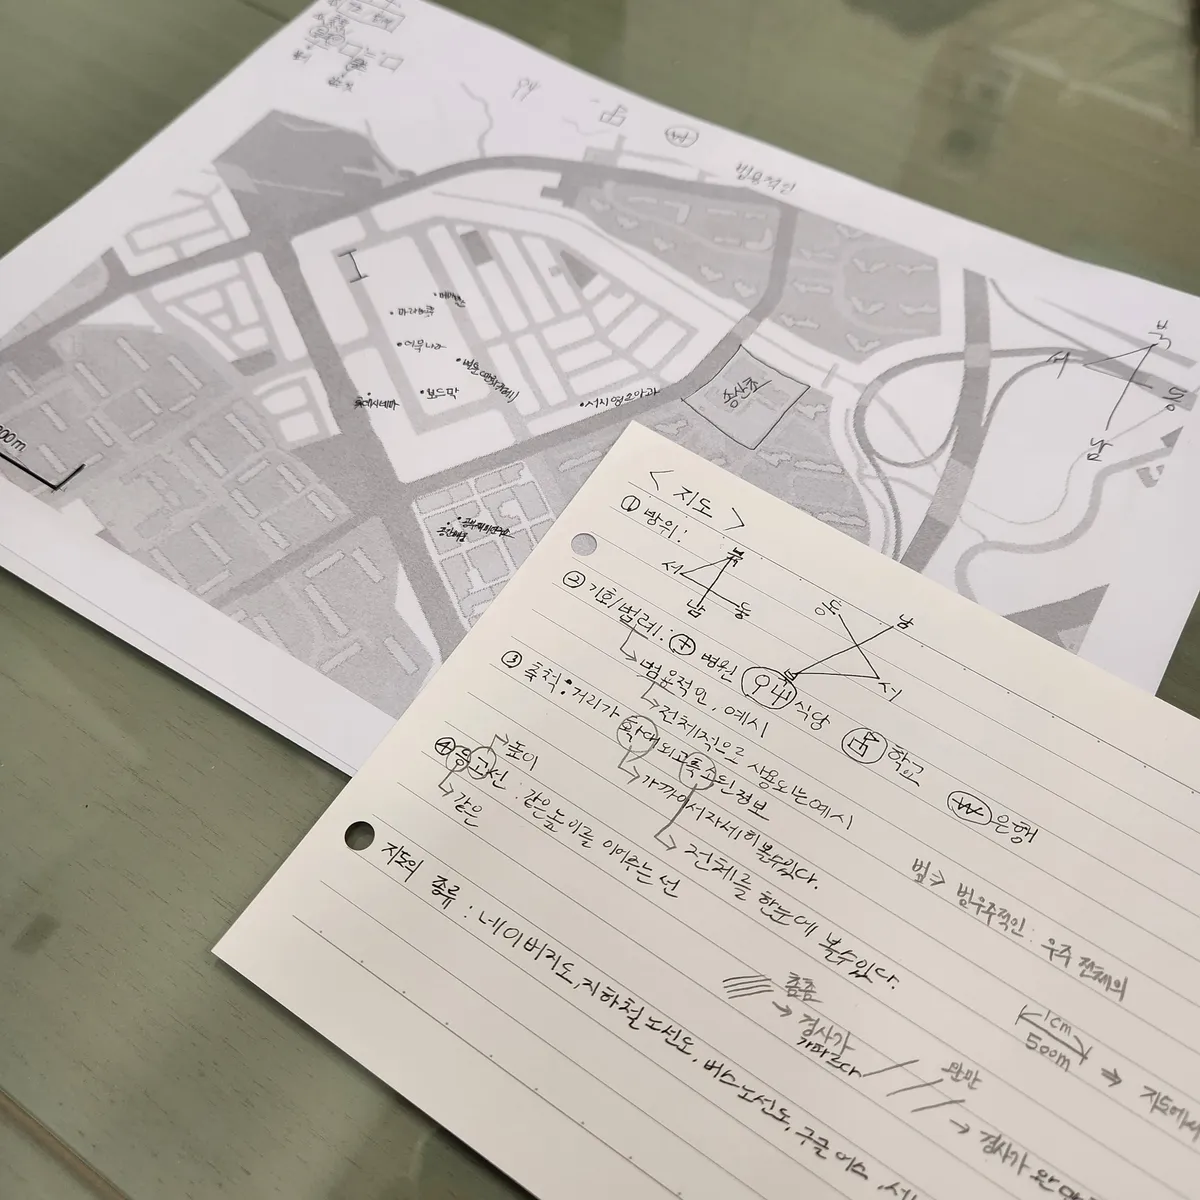 범용적인
북
서
동
남
마라하루
이루나라
보드막
롯데시네마
서시영소아과
송산초
200m
< 지도 >
① 방위:
북
서
남 동
동 남
북 서
② 기호/범례: 병원 식당 학교 ₩ 은행
범용적인, 예시
전체적으로 사용되는 예시
③ 축척: 거리가 확대되고 축소된 정보
가까이서 자세히 볼수있다.
전체를 한눈에 볼수있다.
④ 등고선 : 같은 높이를 이어주는 선
높이
같은
범 → 범우주적인: 우주 전체의
1cm
500m
⇒ 지도에서
촘촘
→ 경사가
가파르다
완만
→ 경사가 완만
지도의 종류 : 네이버지도, 지하철 노선도, 버스노선도, 구글 어스